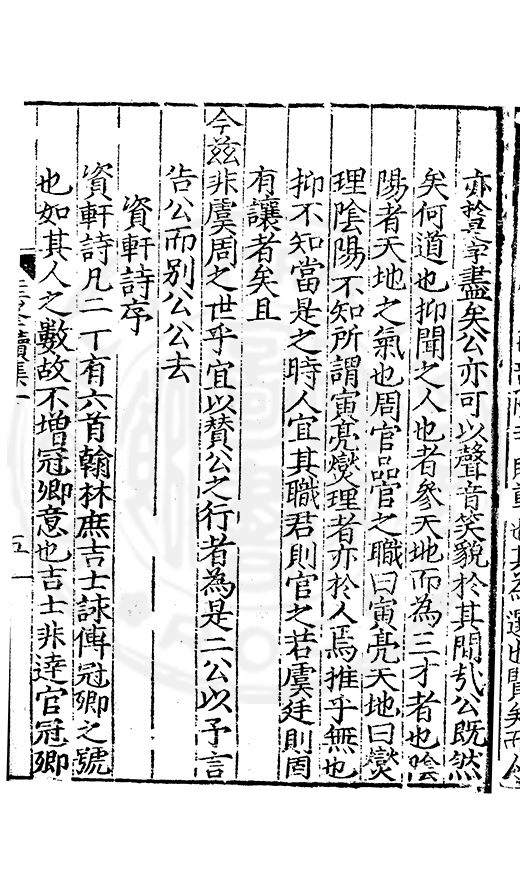 亦字盡矣公亦可以聲音笑貌於其間㢤公既然
矣何道也抑聞之人也者參天地而為三才者也陰
陽者天地之氣也周官品官之職曰寅亮天地曰燮
理陰陽不知所謂寅亮燮理者亦於人焉推乎無也
抑不知當是之時人宜其職君則官之若虞廷則罔
有讓者矣且
今茲非虞周之世乎宜以賛公之行者為是二公以予言
告公而别公公去
資軒詩序
資軒詩凡二丁有六首翰林庶吉士詠傅冠卿之號
也如其人之數故不增冠卿意也吉士非逹官冠卿
續集一
五